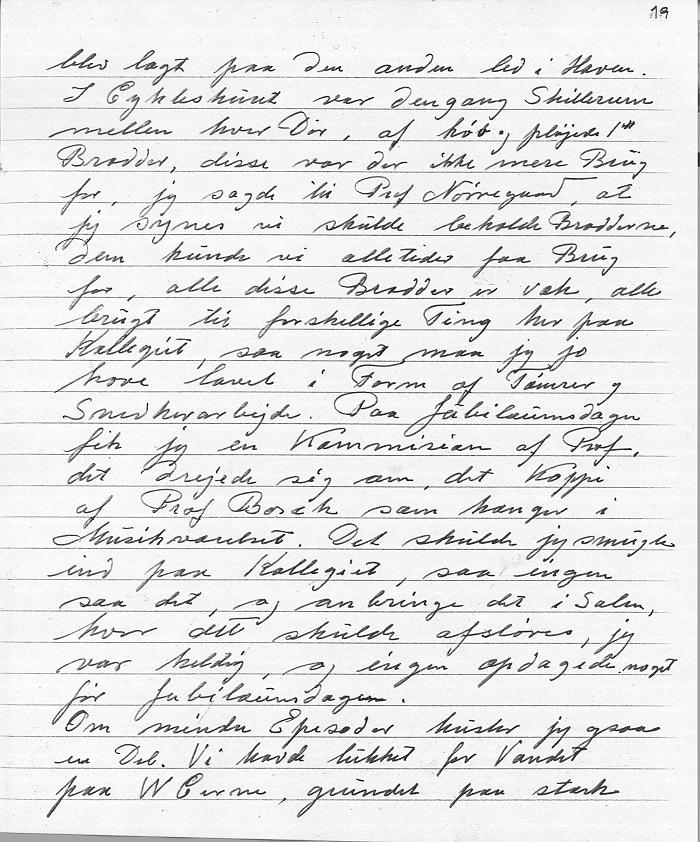 19
blev lagt paa den anden led i Haven.
I Cykleskuret var dengang Skillerum
mellem hver Dør, af høvl og pløjede 1"
Brædder, disse var der ikke mere Brug
for, jg sagde til Prof Nørregaard, at
jg synes vi skulde beholde Brædderne,
dem kunde vi alletider faa Brug
for, alle disse Brædder er væk, alle
brugt til forskellige Ting her paa
Kollegiet, saa noget maa jg jo
have lavet i Form af Tømrer og
Snedkerarbejde. Paa Jubilæumsdagen
fik jg en Kommision af Prof,
det drejede sig om, det Koppi
af Prof Bosch som hænger i
Musikværelset. Det skulde jg smugle
ind paa Kollegiet, saa ingen
saa det, og anbringe det i Salen,
hvor det skulde afsløres, jg
var heldig, og ingen opdagede noget
før Jubilæumsdagen.
Om mindre Episoder husker jg ogsaa
en Del. Vi havde lukket for Vandet
paa W Cerne, grundet paa stærk